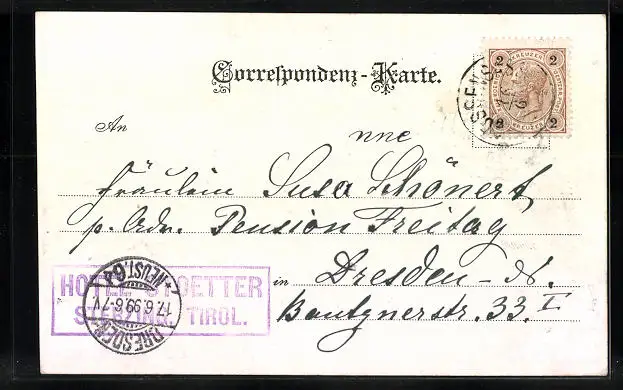 Correspondenz-Karte.
2 KREUZER 2
2 KREUZER 2
An
Fräulein Susa Schönert,
p. Adr. Pension Freitag
in Dresden - N.
Bautznerstr. 33. I
HOTEL STOETTER
TIROL.
DRESDEN
17.6.99.6-7V.
*NEUST.6*